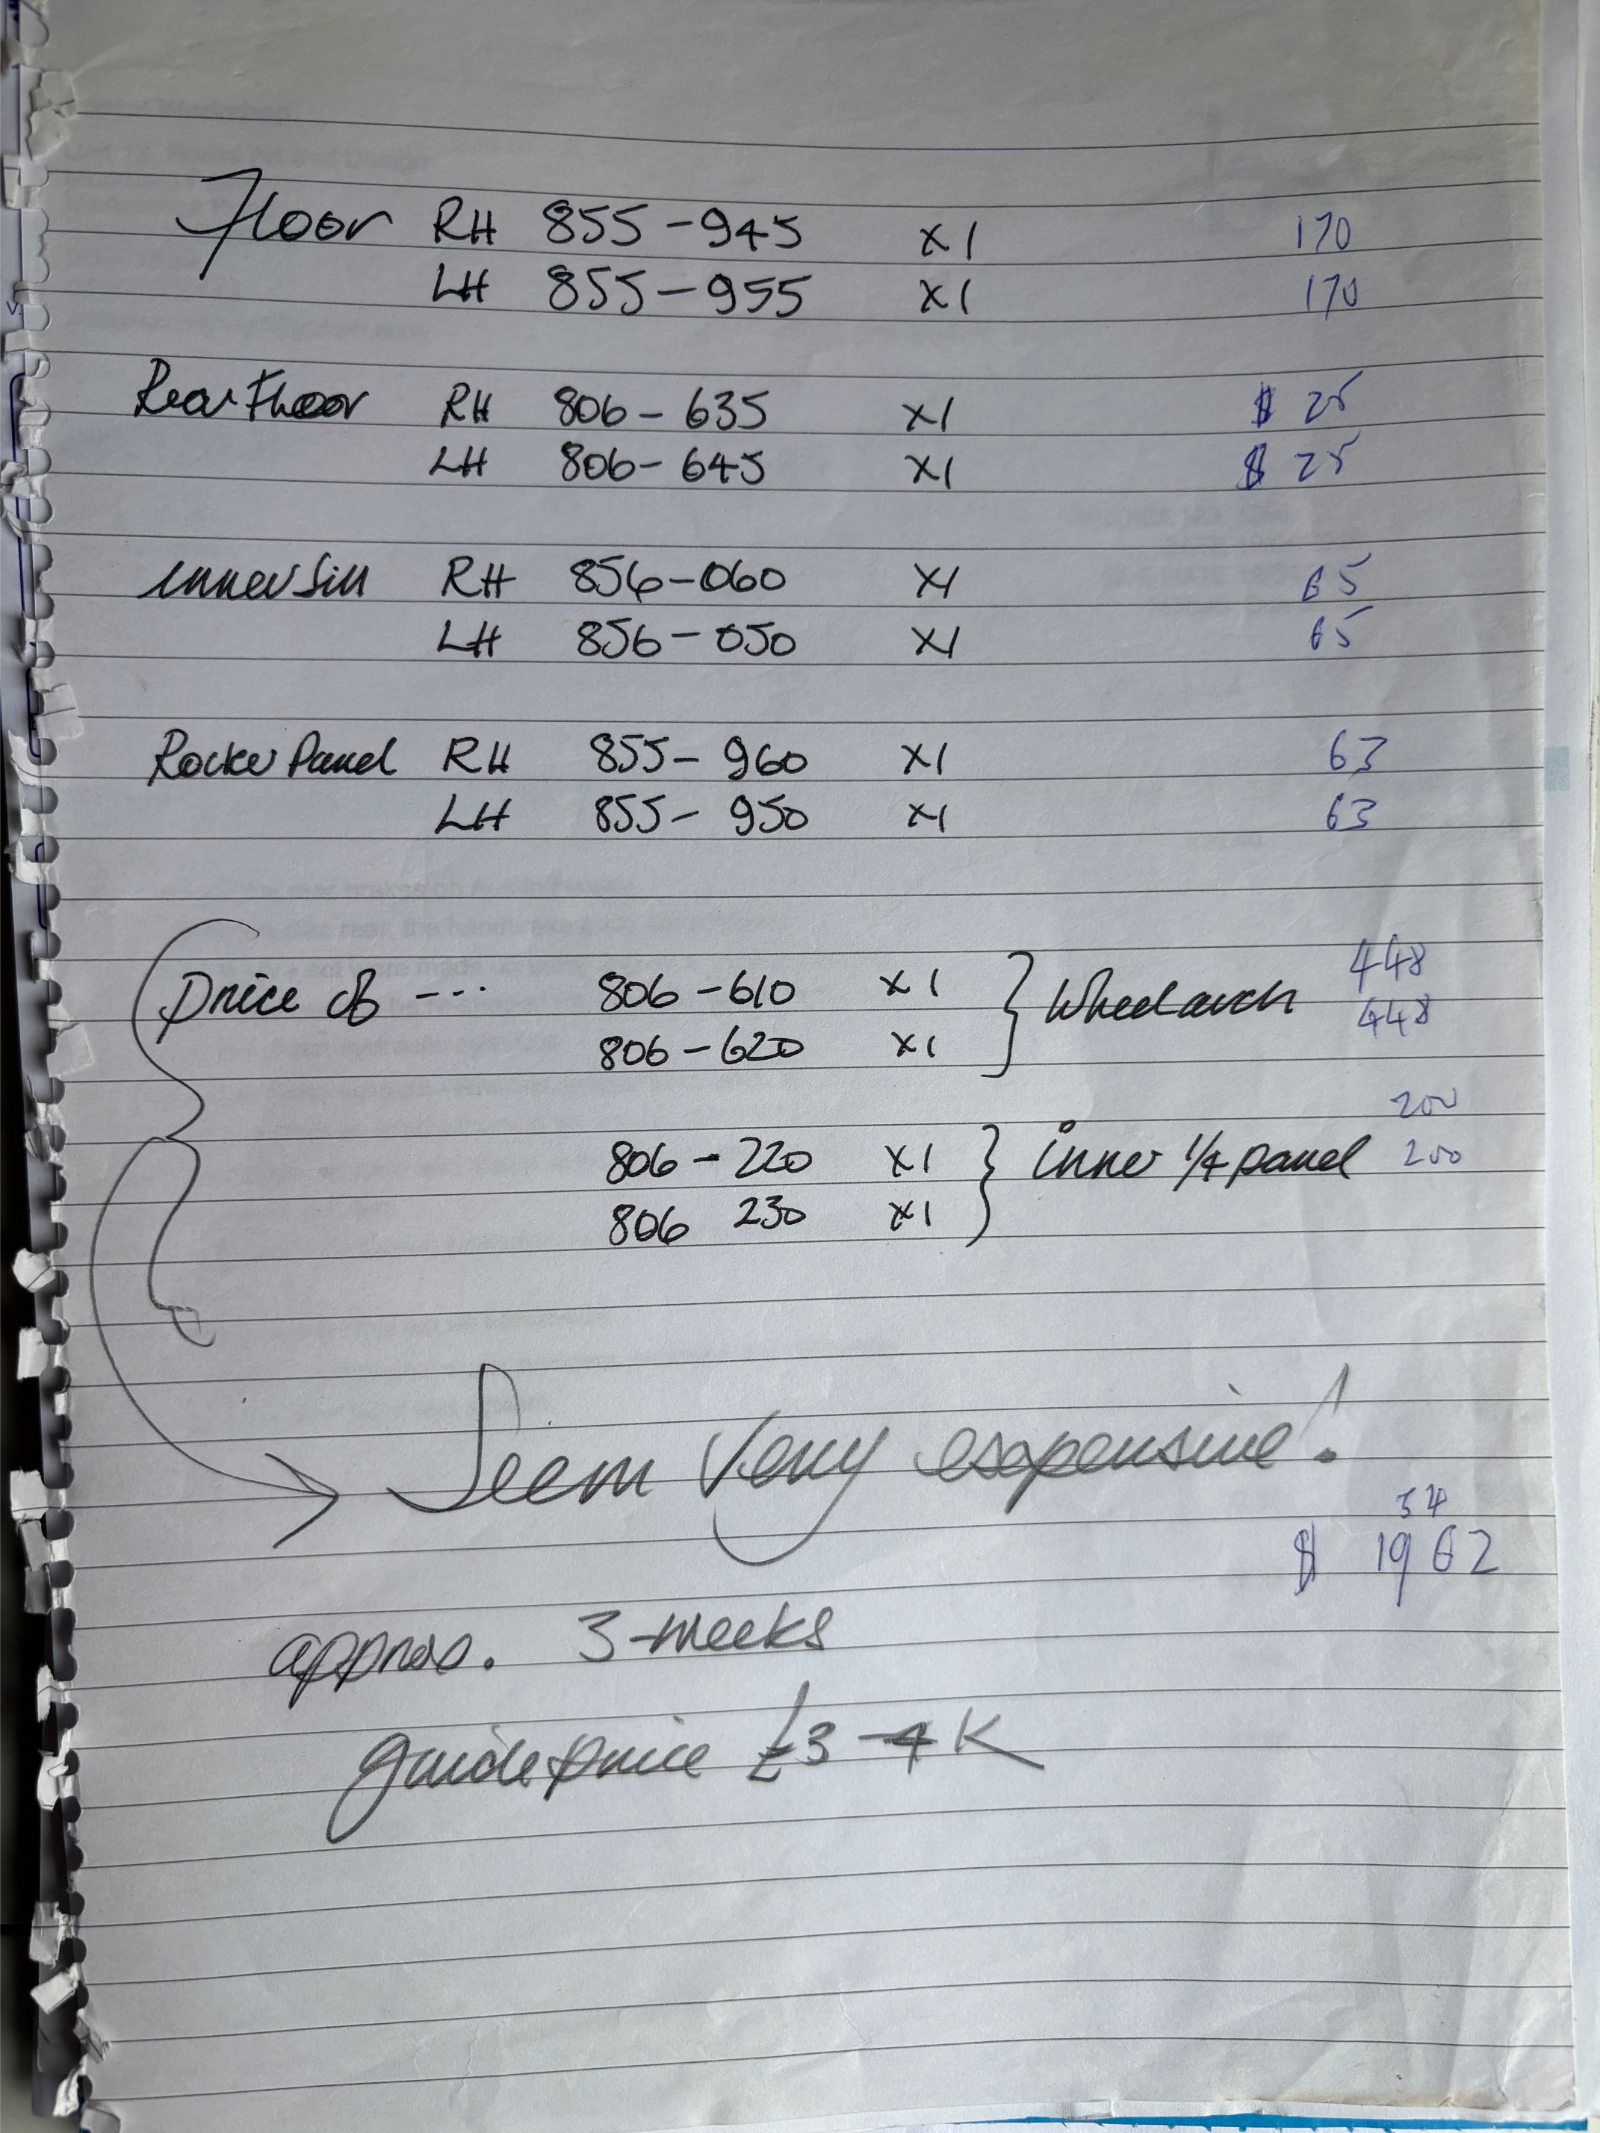 Floor RH 855-945 x1 170
LH 855-955 x1 170
Rear Floor RH 806-635 x1 $ 25
LH 806-645 x1 $ 25
inner Sill RH 856-060 x1 65
LH 856-050 x1 65
Rocker Panel RH 855-960 x1 63
LH 855-950 x1 63
price of --- 806-610 x1 } Wheel arch 448
806-620 x1 448
200
806-220 x1 } inner 1/4 panel 200
806 230 x1
Seem very expensive!
54
$ 1962
approx. 3-weeks
guide price £3-4K